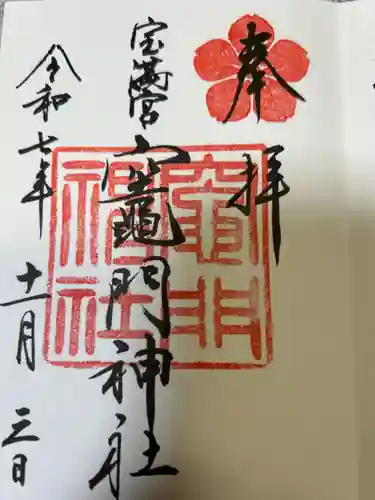 奉拝
宝満宮
竈門神社
令和七年
十一月三日
竈門
神社